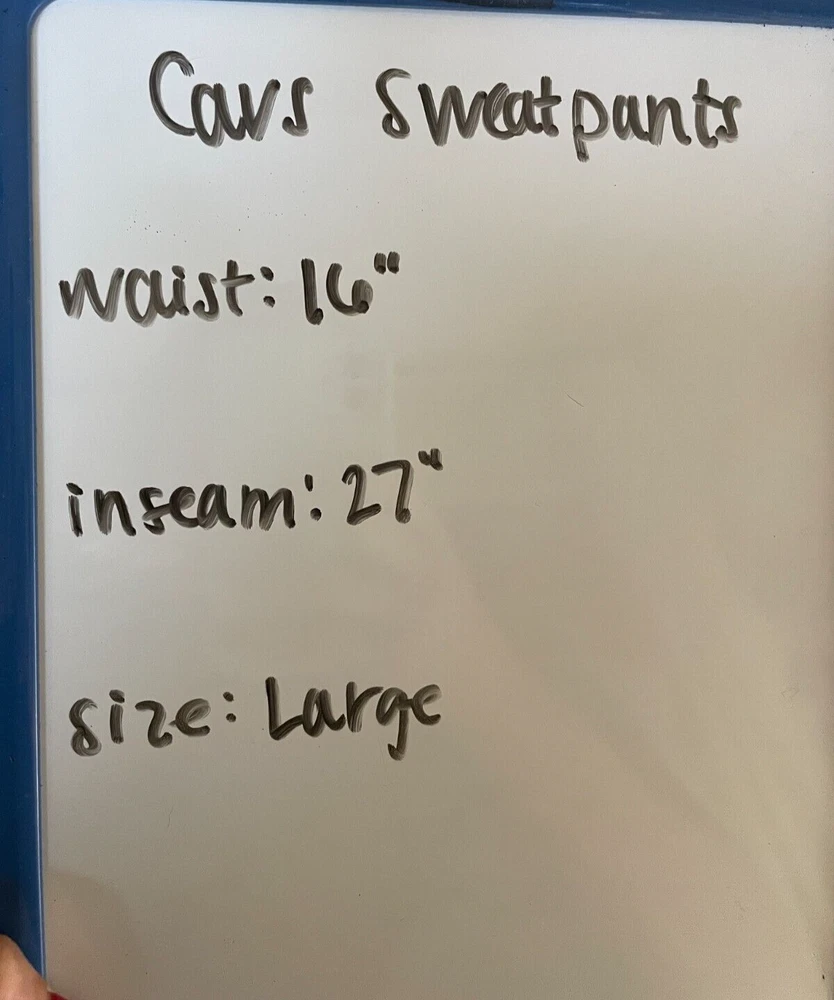 Cavs Sweatpants
waist: 16"
inseam: 27"
size: Large